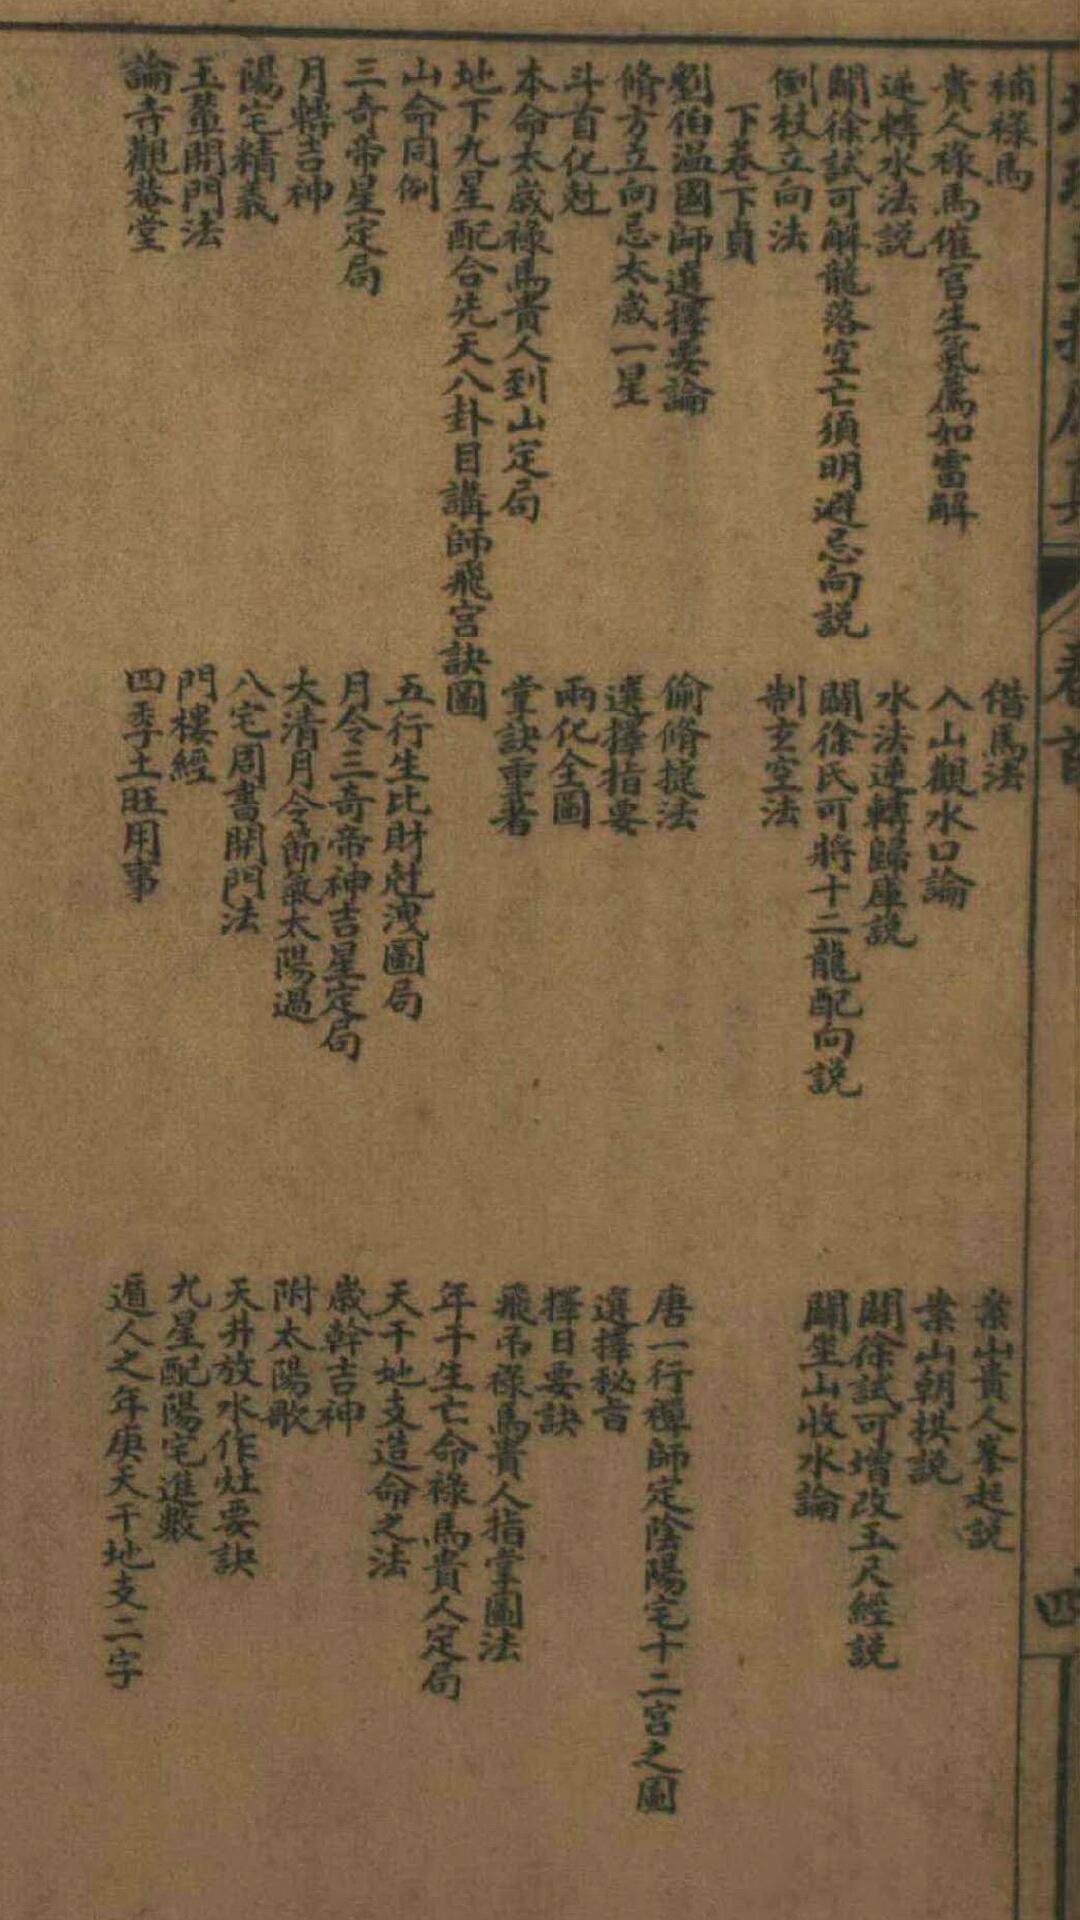 補祿馬
借馬法
案山貴人峯起説
貴人祿馬催官生氣應如雷解
入山觀水口論
案山朝拱説
逆轉水法説
水法逆轉歸庫説
闢徐試可增改玉尺經説
闢徐試可解龍落空亡須明避忌向説
闢徐氏可將十二龍配向説
闢坐山收水論
倒杖立向法
制玄空法
下卷下貞
劉伯溫國師選擇要論
偷脩捷法
唐一行禪師定陰陽宅十二宮之圖
脩方立向忌太歲一星
選擇指要
選擇秘旨
斗首化尅
兩化全圖
擇日要訣
本命太歲祿馬貴人到山定局
掌訣重著
飛吊祿馬貴人指掌圖法
地下九星配合先天八卦目講師飛宮訣圖
年干生亡命祿馬貴人定局
山命同例
五行生比財尅洩圖局
天干地支造命之法
三奇帝星定局
月令三奇帝神吉星定局
歲幹吉神
月轉吉神
大清月令節氣太陽過
附太陽歌
陽宅精義
八宅周書開門法
天井放水作灶要訣
玉輦開門法
門樓經
九星配陽宅進數
論寺觀菴堂
四季土旺用事
遁人之年庚天干地支二字
卷首
四